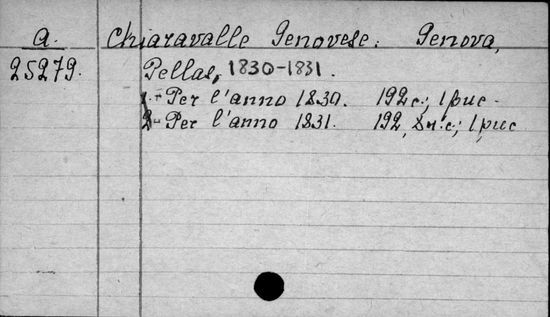 a. Chiaravalle Genovese. Genova,
25279. Pellas, 1830-1831.
1.- Per l'anno 1830. 192c.; 1рис.
2- Per l'anno 1831. 192, 8н.с.; 1рис